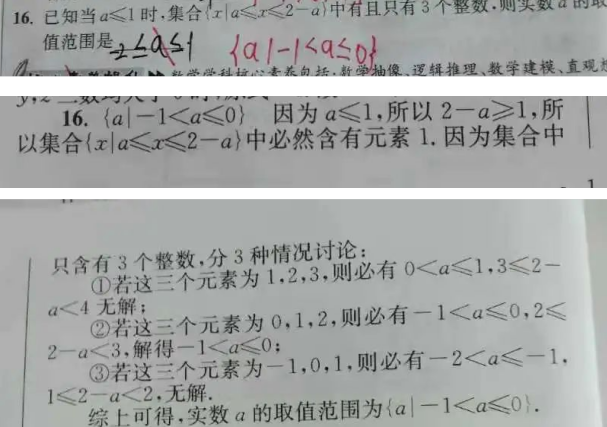 16. 已知当a⩽1时,集合{x|a⩽x⩽2-a}中有且只有3个整数,则实数a的取
值范围是 -2≤a≤1 {a|-1<a≤0}
数学学科核心素养包括:数学抽象、逻辑推理、数学建模、直观想
16. {a|-1<a⩽0} 因为a⩽1,所以2-a⩾1,所
以集合{x|a⩽x⩽2-a}中必然含有元素1.因为集合中
只含有3个整数,分3种情况讨论:
①若这三个元素为1,2,3,则必有0<a⩽1,3⩽2-
a<4无解;
②若这三个元素为0,1,2,则必有-1<a⩽0,2⩽
2-a<3,解得-1<a⩽0;
③若这三个元素为-1,0,1,则必有-2<a⩽-1,
1⩽2-a<2,无解.
综上可得,实数a的取值范围为{a|-1<a⩽0}.